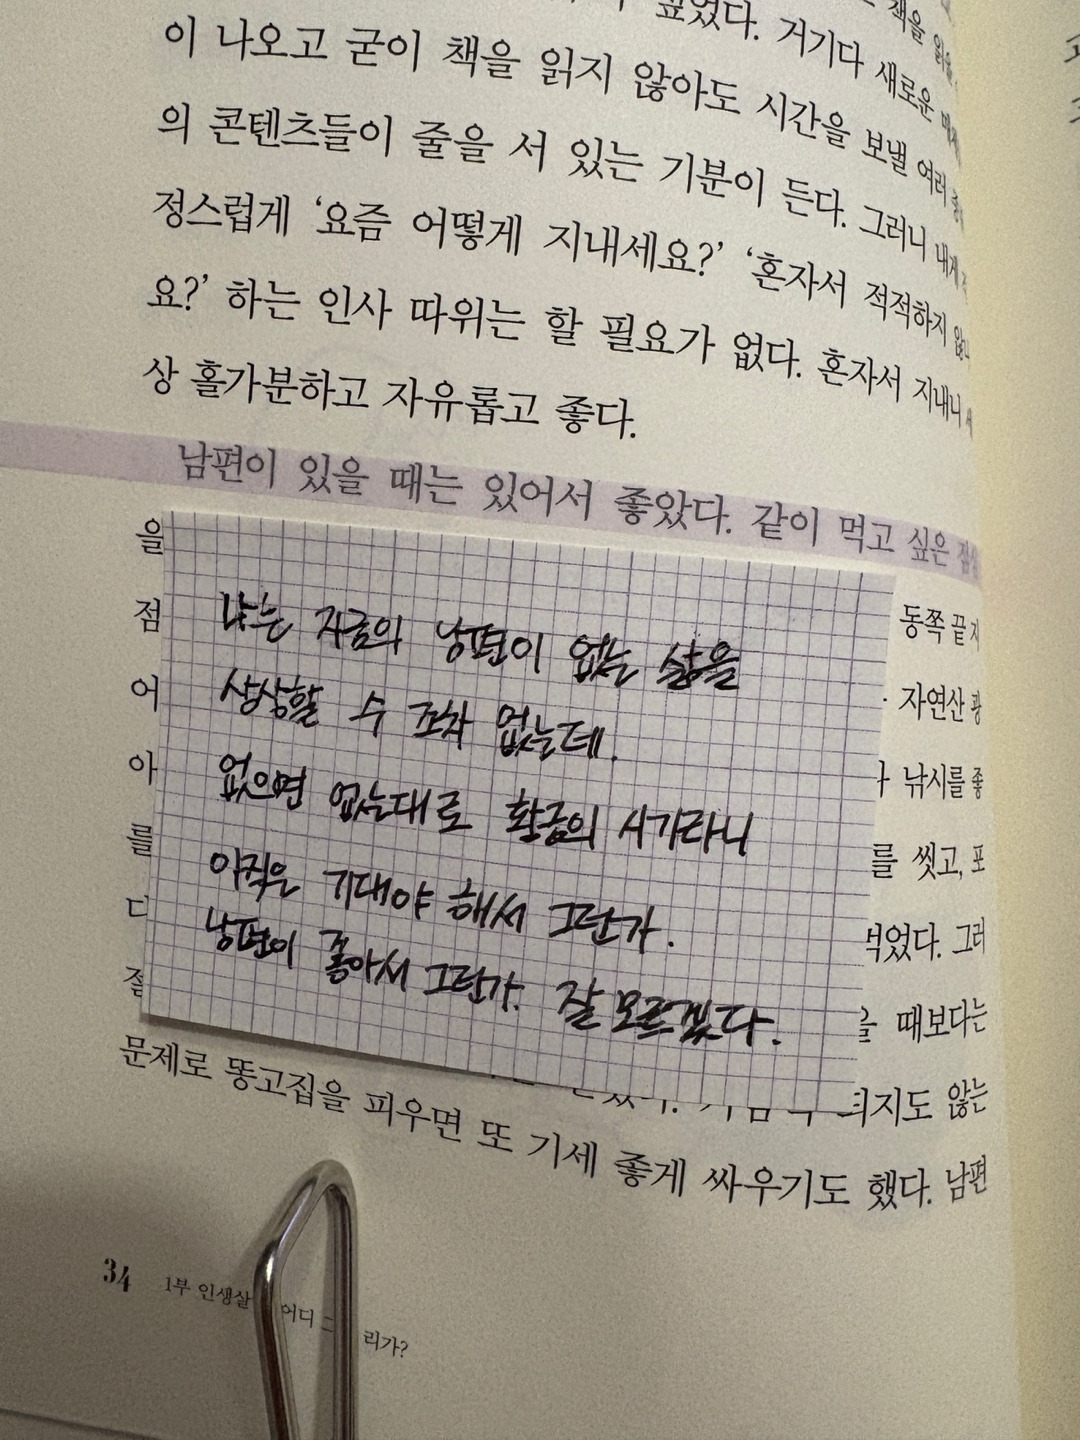 싶었다. 거기다 새로운
이 나오고 굳이 책을 읽지 않아도 시간을 보낼 여러
의 콘텐츠들이 줄을 서 있는 기분이 든다. 그러니 내게
정스럽게 ‘요즘 어떻게 지내세요?’ ‘혼자서 적적하지 않나
요?’ 하는 인사 따위는 할 필요가 없다. 혼자서 지내니
상 홀가분하고 자유롭고 좋다.
남편이 있을 때는 있어서 좋았다. 같이 먹고 싶은
을
점 동쪽 끝
어 자연산
아 낚시를 좋
를 를 씻고, 포
다 먹었다. 그러
절 을 때보다는
되지도 않는
나는 지금의 남편이 없는 삶을
상상할 수 조차 없는데.
없으면 없는대로 황금의 시기라니
아직은 기대야 해서 그런가.
남편이 좋아서 그런가. 잘 모르겠다.
문제로 똥고집을 피우면 또 기세 좋게 싸우기도 했다. 남편
34 1부 인생살 어디 그 리가?